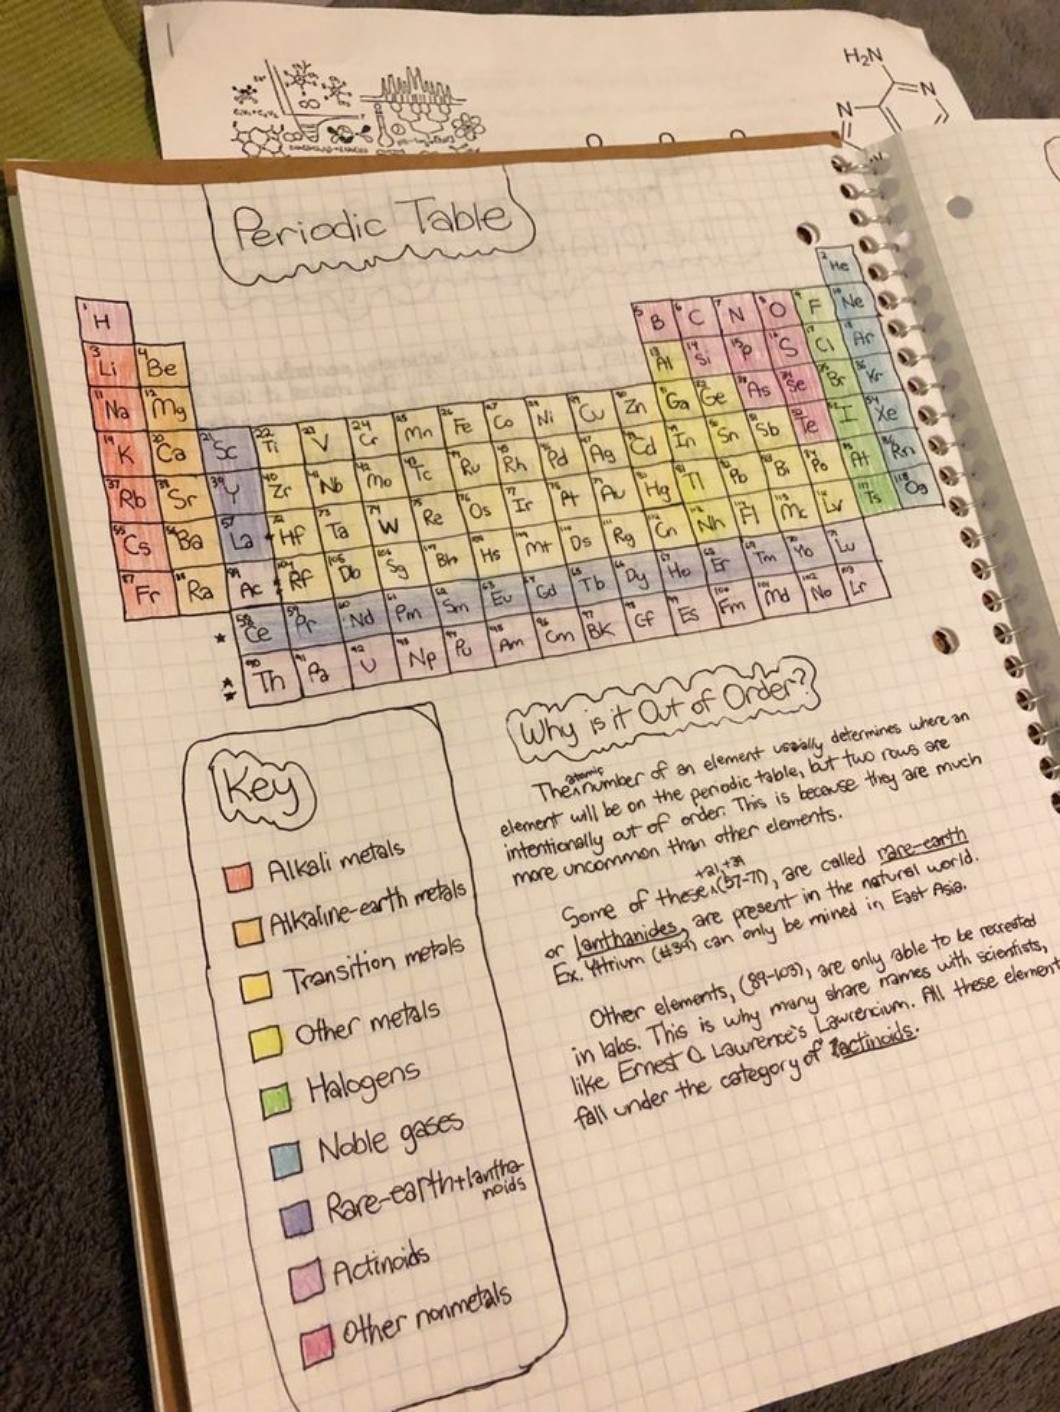 H₂N
N
N
Periodic Table
2 He
1 H 5 B 6 C 7 N 8 O 9 F 10 Ne
3 Li 4 Be 13 Al 14 Si 15 P 16 S 17 Cl Ar
11 Na 12 Mg Ga Ge As Se Br Kr
19 K 20 Ca 21 Sc 22 Ti 23 V 24 Cr 25 Mn 26 Fe 27 Co Ni Cu Zn In Sn Sb Te I 54 Xe
37 Rb 38 Sr 39 Y 40 Zr Nb 42 Mo Tc Ru Rh Pd Ag Cd Tl Pb Bi Po At Rn
55 Cs 56 Ba 57 La 72 Hf 73 Ta W 75 Re 76 Os 77 Ir At Au Hg Nh Fl 115 Mc Lv 117 Ts 118 Og
87 Fr Ra 89 Ac 104 Rf 105 Db 106 Sg Bh Hs Mt Ds Rg Cn
* 58 Ce 59 Pr 60 Nd Pm Sm Eu Gd Tb Dy Ho Er Tm Yb Lu
** 90 Th Pa 92 U Np Pu Am 96 Cm BK Cf Es 100 Fm 101 Md 102 No 103 Lr
Key
Alkali metals
Alkaline-earth metals
Transition metals
Other metals
Halogens
Noble gases
Rare-earth+lantha-
noids
Actinoids
Other nonmetals
Why is it Out of Order?
The atomic number of an element usually determines where an
element will be on the periodic table, but two rows are
intentionally out of order. This is because they are much
more uncommon than other elements.
Some of these +21,+39 (57-71), are called rare-earth
or lanthanides, are present in the natural world.
Ex. Yttrium (#39) can only be mined in East Asia.
Other elements, (89-103), are only able to be recreated
in labs. This is why many share names with scientists,
like Ernest O. Lawrence's Lawrencium. All these element
fall under the category of actinoids.